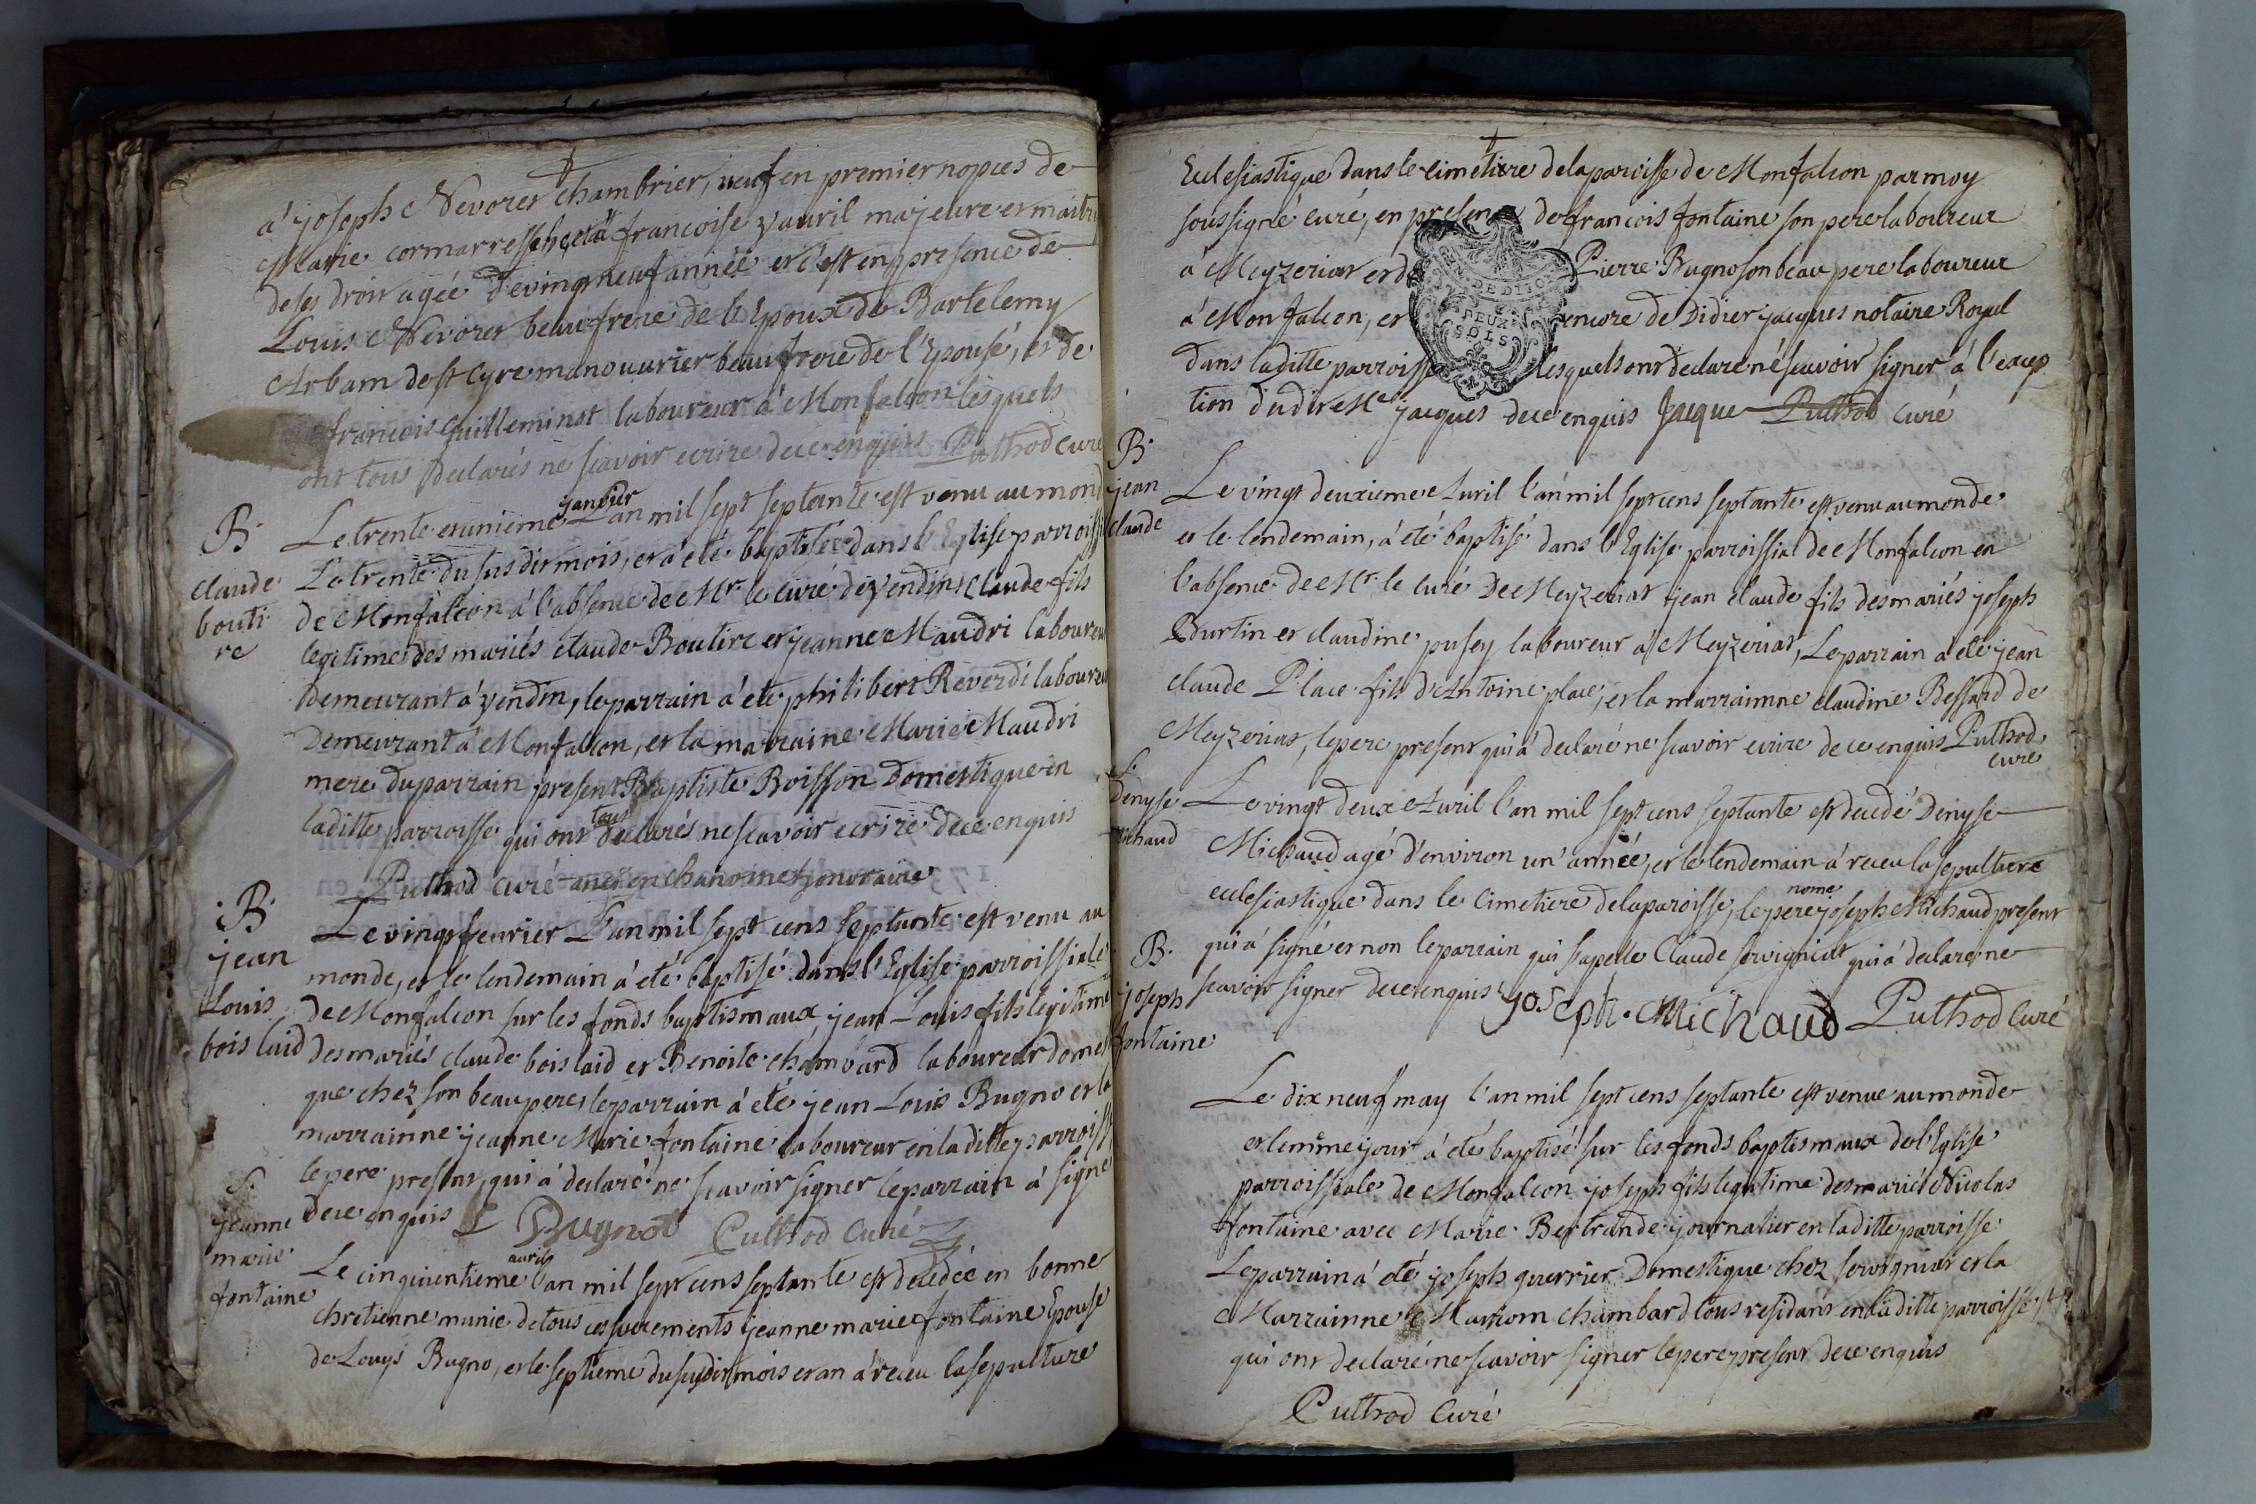 à joseph Nevorer chambrier, veuf en premier nopces de
Marie cormarresche, et à francoise yauril majeure et maitre
de ses droit agée de vingt neuf année et c'est en presence de
Louis Nevorer beaufrere de l'Epoux de Bartelemy
Arbam de st Cyre manouurier beaufrere de l'Epousé, et de
francois Guilleminot laboureur à Monfalcon lesquels
ont tous declarés ne scavoir ecrire de ce enquis Puthod curé
B.
claude
bouti
re
Le trente et unieme janvier L'an mil sept septante est venu au mond
Le trente du susdit mois, et a été baptisé dans l'Eglise parroissi
de Monfalcon à l'absence de Mr. le curé de yendin Claude fils
legitime des mariés claude Boutire et jeanne Maudri laboureur
demeurant à yendin, le parrain à été philibert Reverdi laboureu
Demeurant à Monfalcon, et la marraine Marie Maudri
mere du parrain present Baptiste Boisson Domestique en
laditte parroisse qui ont tous declarés ne scavoir ecrire de ce enquis
Puthod curé ancien chanoine honoraire
B.
jean
Louis
bois laid
Le vingt feurier L'an mil sept cens septante est venu au
monde, et le lendemain à été baptisé dans l'Eglise parroissiale
de Monfalcon sur les fonds baptismaux, jean Louis fils legitime
des mariés claude bois laid et Benoite chambard laboureur domes
que chez son beaupere, le parrain à été jean Louis Bugno et la
marrainne jeanne Marie fontaine laboureur en laditte parroiss
le pere present, qui à declaré ne scavoir signer le parrain à signé
de ce enquis L Bugnot Puthod Curé
S.
jeanne
marie
fontaine
Le cinquientieme auril l'an mil sept cens septante est decedée en bonne
chretienne munie de tous ces sacrements jeanne marie fontaine Epouse
de Louys Bugno, et le septieme du susdit mois et an à receu la sepulture
Eclesiastique dans le cimetiere de la paroisse de Monfalcon par moy
soussigné curé, en presence de francois fontaine son pere laboureur
à Meyzeriat et de Pierre Bugno son beau pere laboureur
à Monfalcon, et encore de Didier jacques notaire Royal
dans laditte parroisse lesquels ont declaré né scavoir signer à l'excep
tion dudit Me jacques de ce enquis Jacque Puthod curé
GEN. DE DIJON
DEUX
SOLS
B.
jean
claude
Le vingt deuxieme Auril l'an mil sept cens septante est venu au monde
et le lendemain, à été baptisé dans l'Eglise parroissial de Monfalcon en
l'absence de Mr. le Curé De Meyzeriat jean claude fils des mariés joseph
Burtin et claudine pusey laboureur à Meyzeriat, Le parrain à été jean
claude Place fils d'Antoine place, et la marrainne claudine Bessard de
Meyzerias, le pere present qui à declaré ne scavoir ecrire de ce enquis Puthod
curé
S.
Denyse
Michaud
Le vingt deux Auril l'an mil sept cens septante est decedé Denyse
Michaud agé d'environ un' année, et le lendemain à receu la sepulture
ecclesiastique dans le Cimetiere de la paroisse, le pere nomé joseph Michaud present
qui à signé et non le parrain qui s'apelle Claude servignat qui à declaré ne
scavoir signer de ce enquis joseph Michaud Puthod Curé
B.
joseph
fontaine
Le dix neuf may l'an mil sept cens septante est venue au monde
et le mème jour à été baptisé sur les fonds baptismaux de l'Eglise
parroissiale de Monfalcon joseph fils legitime des marié Nicolas
fontaine avec Marie Bertrande journalier en laditte parroisse
Le parrain à été joseph guerrier Domestique chez servignat et la
Marrainne Marion chambard tous residant en laditte parroisse
qui ont declaré ne scavoir signer le pere present de ce enquis
Puthod Curé